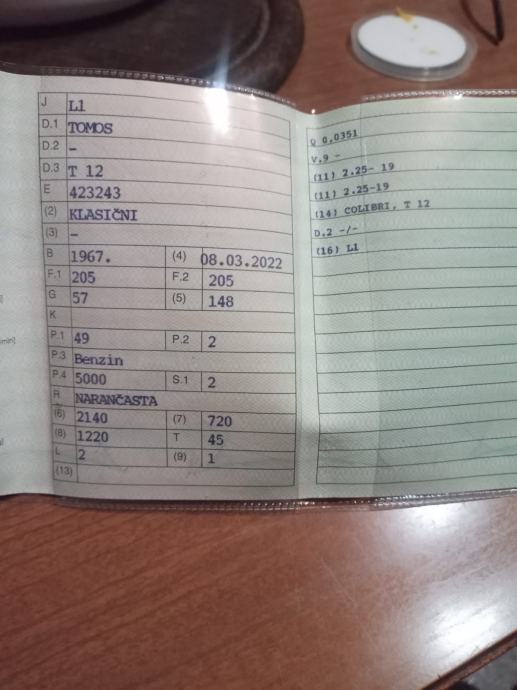 J L1
D.1 TOMOS
D.2 -
D.3 T 12
E 423243
(2) KLASIČNI
(3) -
B 1967. (4) 08.03.2022
F.1 205 F.2 205
G 57 (5) 148
K
P.1 49 P.2 2
P.3 Benzin
P.4 5000 S.1 2
R NARANČASTA
(6) 2140 (7) 720
(8) 1220 T 45
L 2 (9) 1
(13)
Q 0,0351
V.9 -
(11) 2.25- 19
(11) 2.25-19
(14) COLIBRI, T 12
D.2 -/-
(16) L1